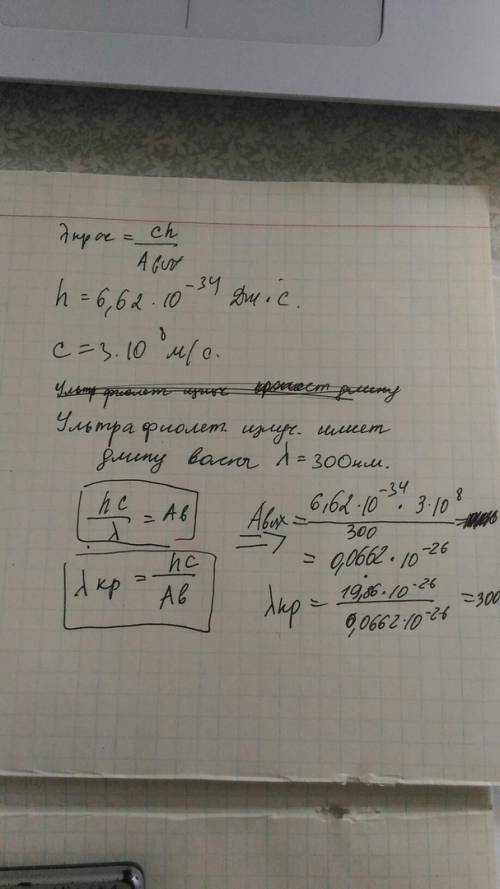 λкрас = ch / Aвых
h = 6,62 · 10⁻³⁴ Дж · с.
c = 3 · 10⁸ м/с.
Ультрафиолет. излуч. имеет
длину волны λ = 300нм.
hc / λ = Aв
=> Aвых = 6,62 · 10⁻³⁴ · 3 · 10⁸ / 300 =
= 0,0662 · 10⁻²⁶
λкр = hc / Aв
λкр = 19,86 · 10⁻²⁶ / 0,0662 · 10⁻²⁶ = 300